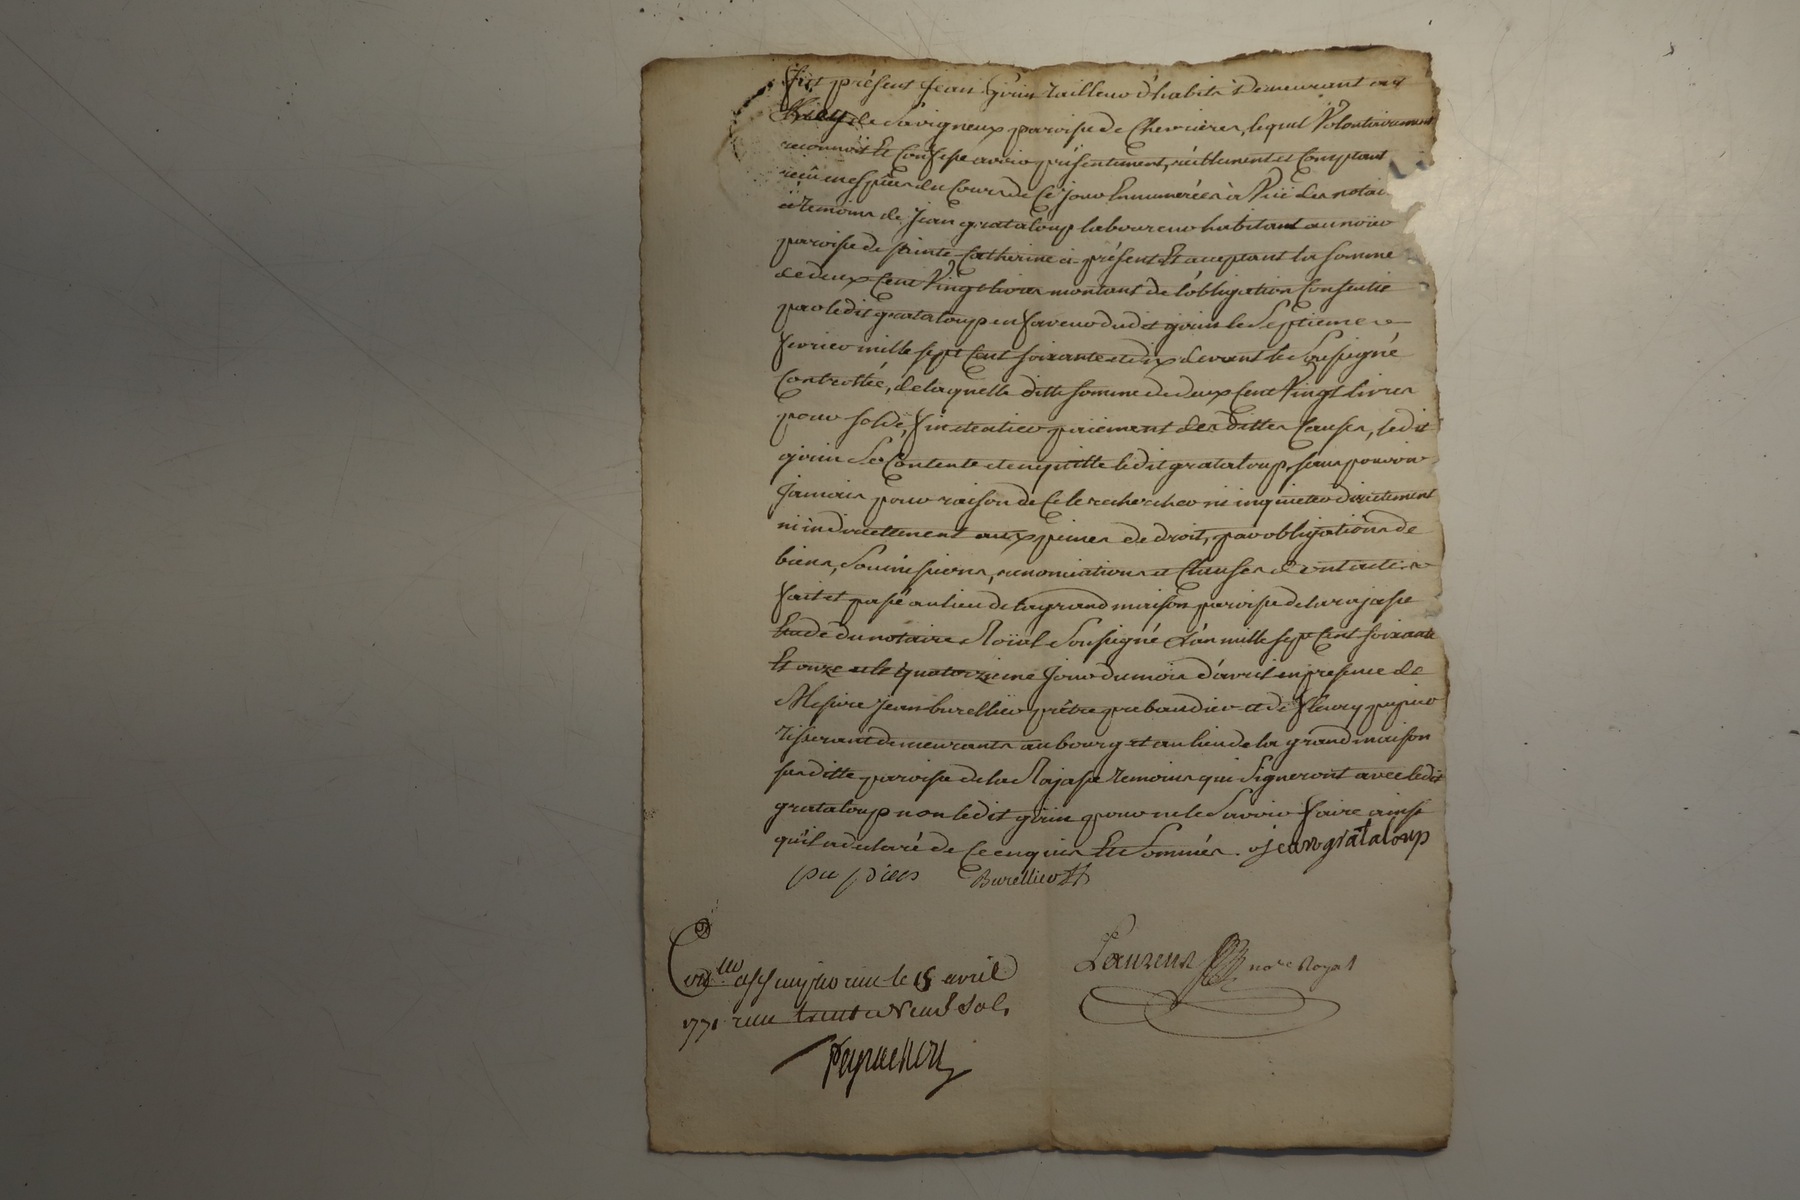 fut présent Jean goïin tailleur d'habits demeurant au
de Savigneux paroisse de Chevrières, lequel Volontairement
reconnoit Et Confesse avoir présentement, réellement et Comptant
reçû en espèces du Cours de Ce jour Enumerées à Vüe des notai
et temoins de Jean grataloup laboureur habitant au noïer
paroisse de Sainte Catherine ci présent Et aceptant la somme
de deux Cent Vingt livres montant de l'obligation Consentie
par ledit grataloup en faveur dudit goïin le Septieme
fevrier mille sept Cent soixante et dix devant le Soussigné
Controllée, de laquelle ditte somme de deux Cent Vingt livres
pour solde, fin et entier païement des dittes Causes, ledit
goïin Se Contente et en quitte ledit grataloup, sans pouvoir
Jamais pour raison de Ce le rechercher ni inquieter directement
ni indirectement aux peines de droit, par obligations de
biens, Soumissions, renonciations et Clauses
fait et passé au lieu de la grand maison paroisse de la rajasse
Etude du notaire Roïal Soussigné l'an mille sept Cent soixante
Et onze et le quatorzieme Jour du mois d'avril en presence de
Messire Jean burellier prêtre prebandier et de fleury pupier
tisserant demeurants au bourg et au lieu de la grand maison
susditte paroisse de la Rajasse temoins qui Signeront avec ledit
grataloup non ledit goïin pour ne le Savoir faire ainsi
qu'il a declaré de Ce enquis Et Sommés. jean grataloup
Burellier
Laurens no.re Royal
le 15 avril
1771 reçu trente Neuf Sols